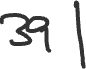 39 |